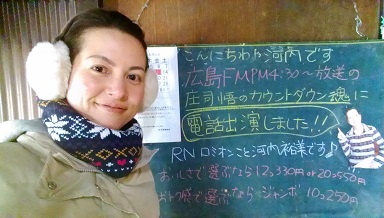 こんにちわ♪河内です
広島FMPM4:30〜放送の
庄司悟のカウントダウン魂に
電話出演しました!!
RN ロミオンこと河内裕美です♪
おいしさで選ぶなら12コ330円or20コ550円
おトク感で選ぶなら ジャンボ 10コ250円